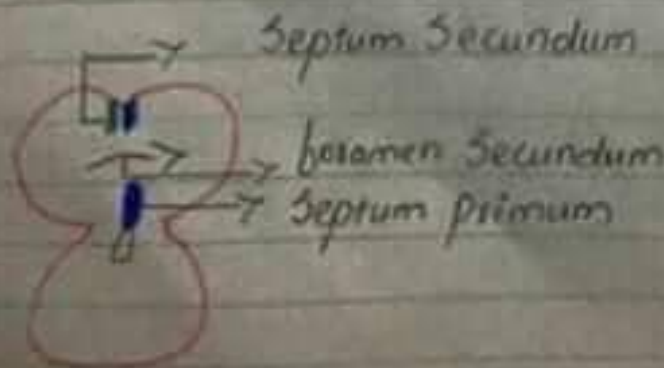 Septum Secundum
foramen Secundum
Septum Primum